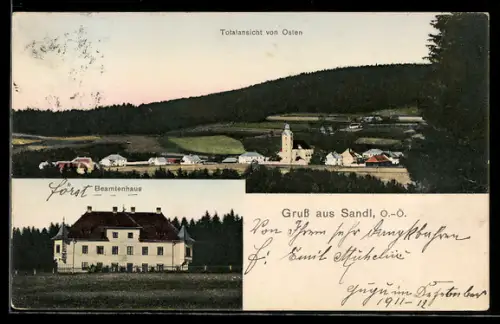 Totalansicht von Osten
Först
Beamtenhaus
Gruß aus Sandl, O.-Ö.
Von Ihrem sehr dankbaren
Emil
im Dezember
1911